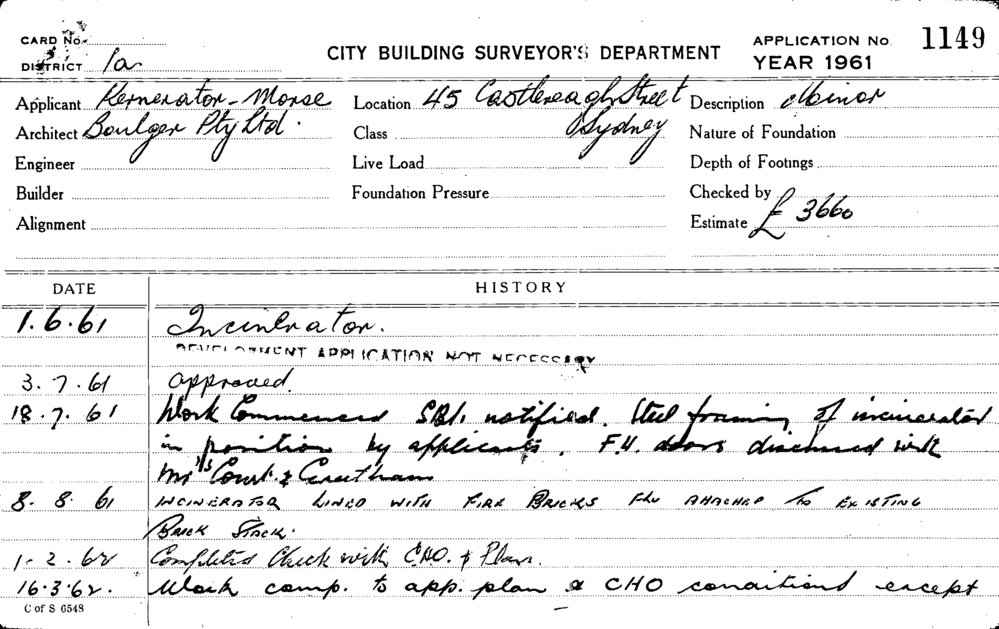 CARD No.
DISTRICT 1a
CITY BUILDING SURVEYOR'S DEPARTMENT
APPLICATION No. 1149
YEAR 1961
Applicant Kernerator-Morse Location 45 Castlereagh Street Description Minor
Architect Boulger Pty Ltd. Class Sydney Nature of Foundation
Engineer Live Load Depth of Footings
Builder Foundation Pressure Checked by
Alignment Estimate £ 3660
DATE HISTORY
1.6.61 Incinerator.
DEVELOPMENT APPLICATION NOT NECESSARY
3.7.61 approved.
18.7.61 Work Commenced notified. Steel framing of incinerator
in position by applicants. F.H. doors discussed with
Court &
8.8.61 INCINERATOR LINED WITH FIRE BRICKS FLU ATTACHED TO EXISTING
BRICK STACK.
1-2.62 Completed Check with C.H.O. & Plan.
16.3.62. Work comp. to app. plan & CHO conditions except
C of S 6548